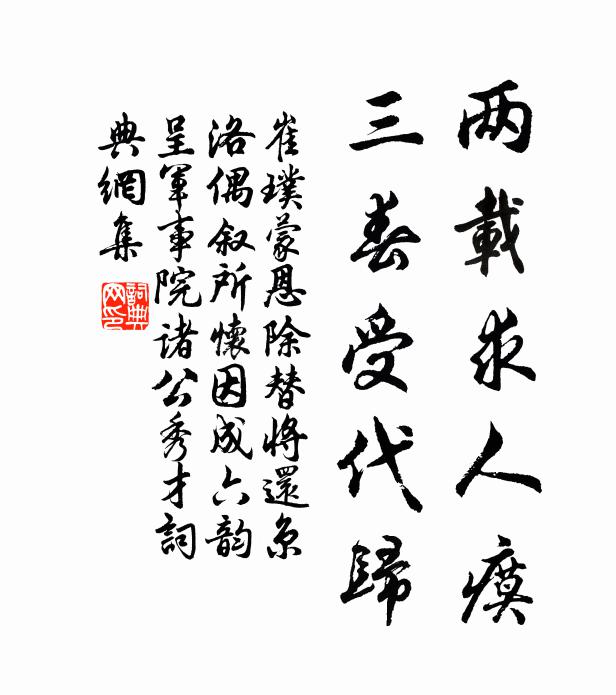 两載求人瘼
三春受代歸
崔璞蒙恩除替將還京
洛偶叙所懷因成六韵
呈軍事院諸公秀才詞
典網集
詞典網印